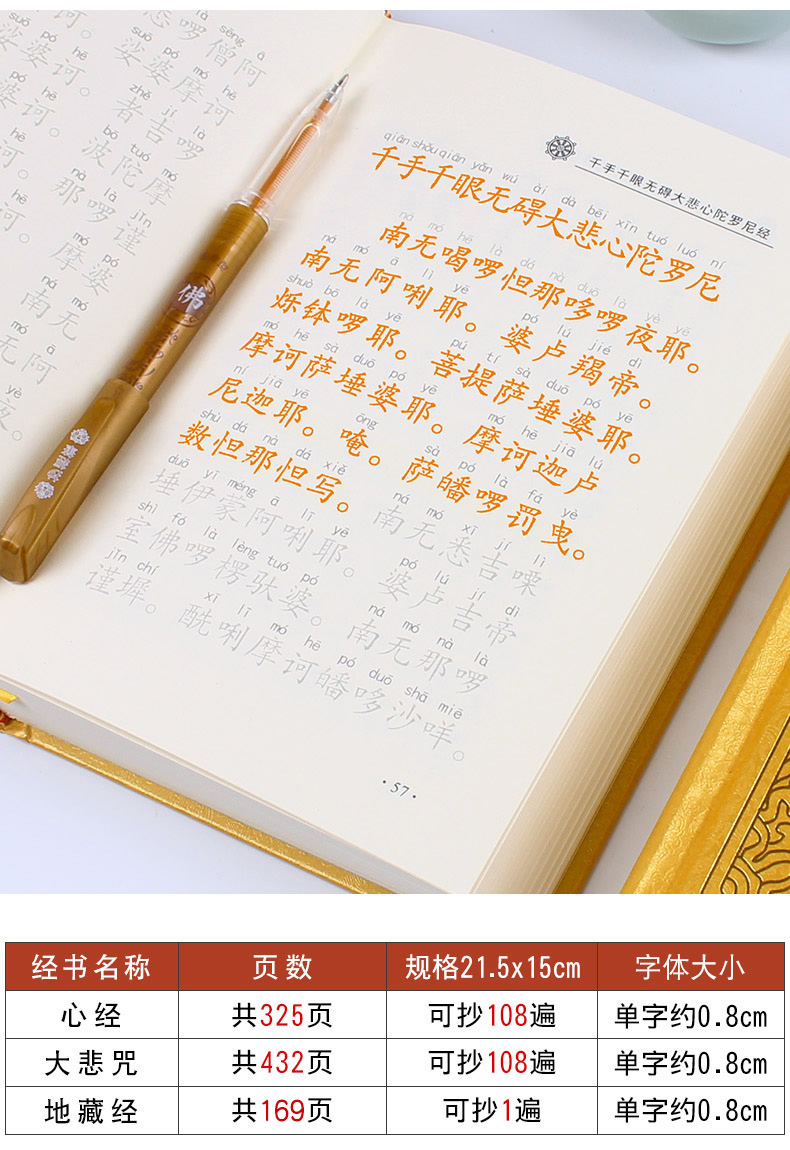 哆啰僧阿
娑婆摩诃
者吉啰
波陀摩
那啰谨
摩婆
南无
无阿
夜。
佛
千手千眼无碍大悲心陀罗尼经
qiān shǒu qiān yǎn wú ài dà bēi xīn tuó luó ní
千手千眼无碍大悲心陀罗尼
ná mó hē là dá nà duō là yè yē
南无喝啰怛那哆啰夜耶。
ná mó ā lì yē pó lú jié dì
南无阿唎耶。婆卢羯帝。
shuò bō là yē pú tí sà duǒ pó yē
烁钵啰耶。菩提萨埵婆耶。
mó hē sà duǒ pó yē mó hē jiā lú
摩诃萨埵婆耶。摩诃迦卢
ní jiā yē ōng sà pó là fá yè
尼迦耶。唵。萨皤啰罚曳。
shù dá nà dá xiě ná mó xī jí lì
数怛那怛写。南无悉吉㗚
duǒ yī méng ā lī yē pó lú jí dì
埵伊蒙阿唎耶。婆卢吉帝
shì fó là lèng tuó pó ná mó nà là
室佛啰楞驮婆。南无那啰
jǐn chí xī lī mó hē pó duō shā miē
谨墀。酰唎摩诃皤哆沙咩。
·57·
经书名称 页数 规格21.5x15cm 字体大小
心经 共325页 可抄108遍 单字约0.8cm
大悲咒 共432页 可抄108遍 单字约0.8cm
地藏经 共169页 可抄1遍 单字约0.8cm